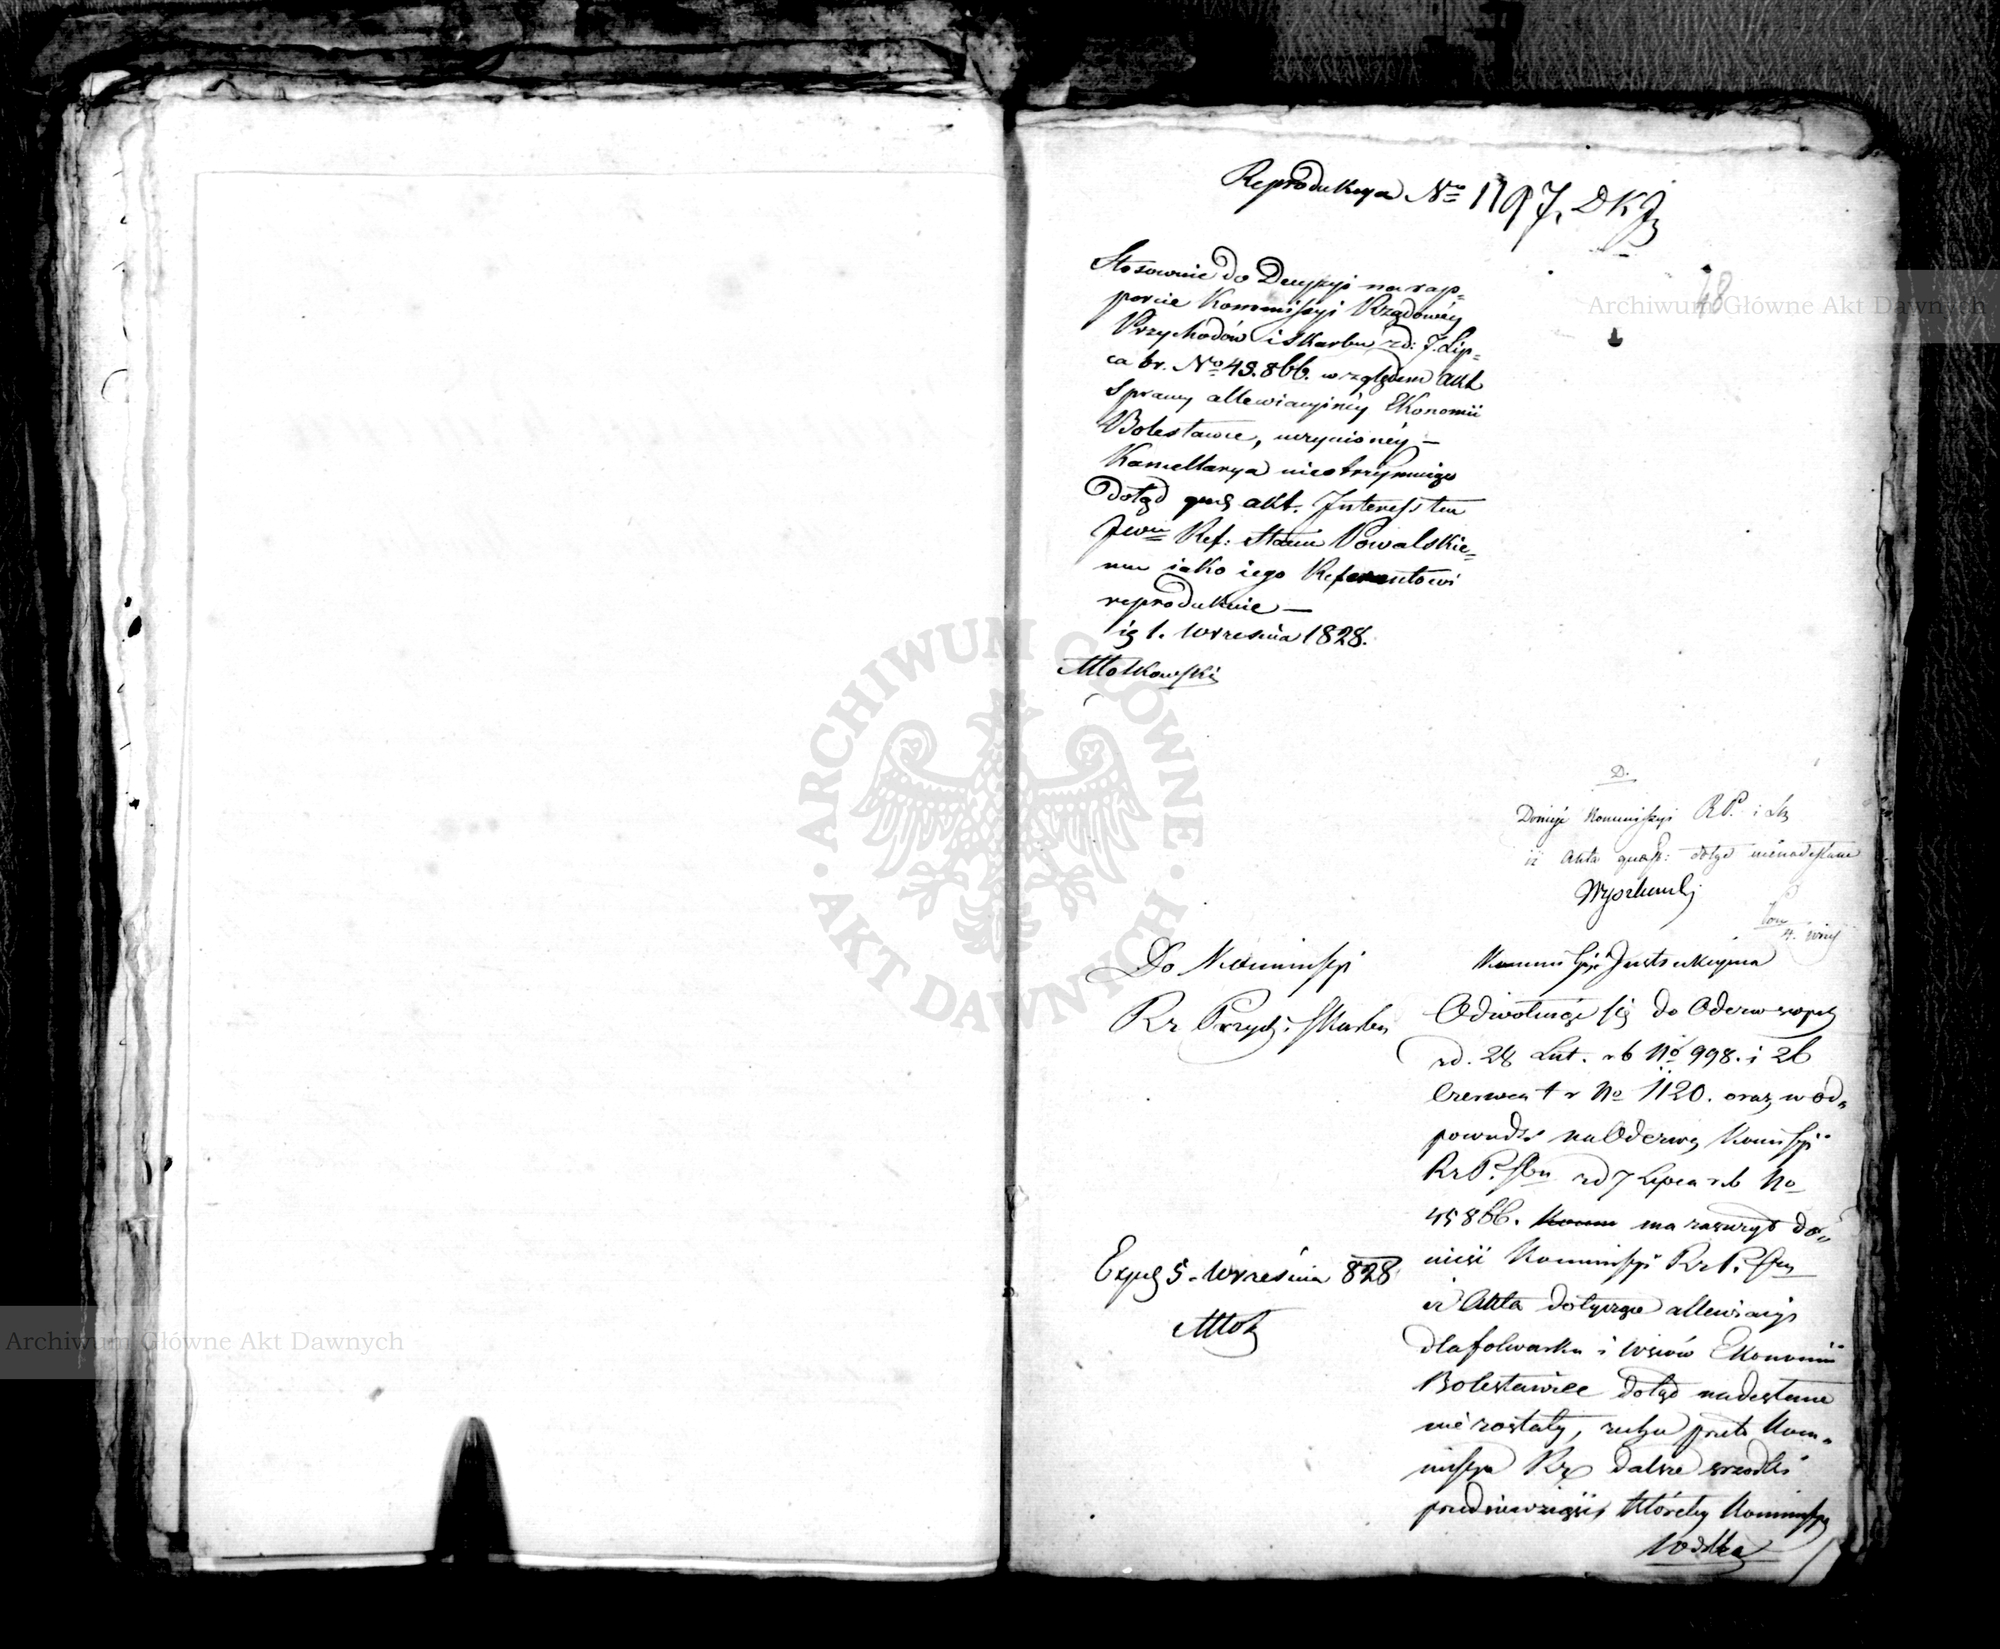 Reprodukcya No 1197. DKJ
48
Stosownie do Decyzyi na rap=
porcie Kommissyi Rządowéy
Przychodów i Skarbu z d: 7. Lip=
ca br. No 45.866. względem akt
Sprawy allewiacyinéy Ekonomii
Bolesławiec, uczynionéy —
Kancellarya nieotrzymuiąc
Dotąd akt. Interess ten
JWu Ref: Stanu Powalskie=
mu iako iego Referentowi
reprodukuie —
1. Września 1828.
Młotkowski
D.
Donieść Kommissyi R P. i Sk
iż Akta quaest: dotąd nienadesłane
4. Wrześ
Do Kommissyi
Rz Przych i Skarbu
Kommissya Instrukcyina
Odwołuiąc się do Odezw swych
z d. 28 Lut. r b No 998. i 26
Czerwca t r No 1120. oraz w od=
powiedzi na Odezwę Kommissyi
Rz P. Sbu z d 7 Lipca r.b No
45866. Komm ma zaszczyt do=
nieść Kommissyi Rz P. Sbu
iż Akta dotyczące allewiacyi
dla folwarku i wsiów Ekonomii
Bolesławiec dotąd nadesłane
nie zostały, zechce przeto Kom=
missya Rz dalsze srzodki
przedsiewziąść, któréby Kommissya
Exped 5. Września 828
Młotk